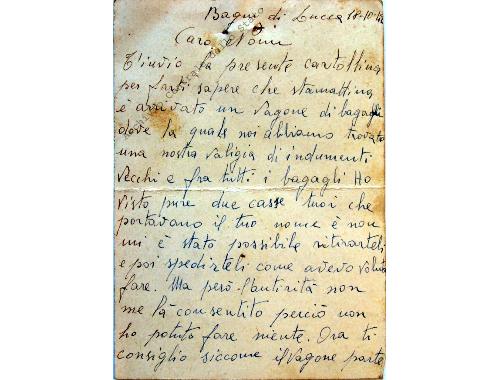 Bagni di Lucca 18-10-
Caro
T'invio la presente cartollina
per farti sapere che stamattina
è aravato un vagone di bagagli
dove la quale noi abbiamo trovato
una nostra valigia di indumenti
vecchi e fra tutti i bagagli Ho
visto pure due casse tuoi che
portavano il tuo nome è non
mi è stato possibile ritirarteli
e poi spedirteli come avevo voluto
fare. Ma però l'autirità non
me là consentito perciò non
ho potuto fare niente. Ora ti
consiglio siccome il vagone parte